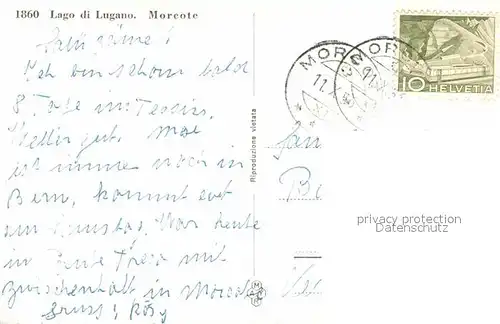 1860 Lago di Lugano. Morcote
Ich bin schon bald
8 Tage im Tessin.
Wetter gut. Max
ist immer noch in
Bern, kommt evt
am Samstag. War heute
in Ponte Tresa mit
Zwischenhalt in Morcote
Gruss! Rösy
Riproduzione vietata
MORCOTE
11.
MORCOTE
11.
10 HELVETIA
Fam
privacy protection
Datenschutz